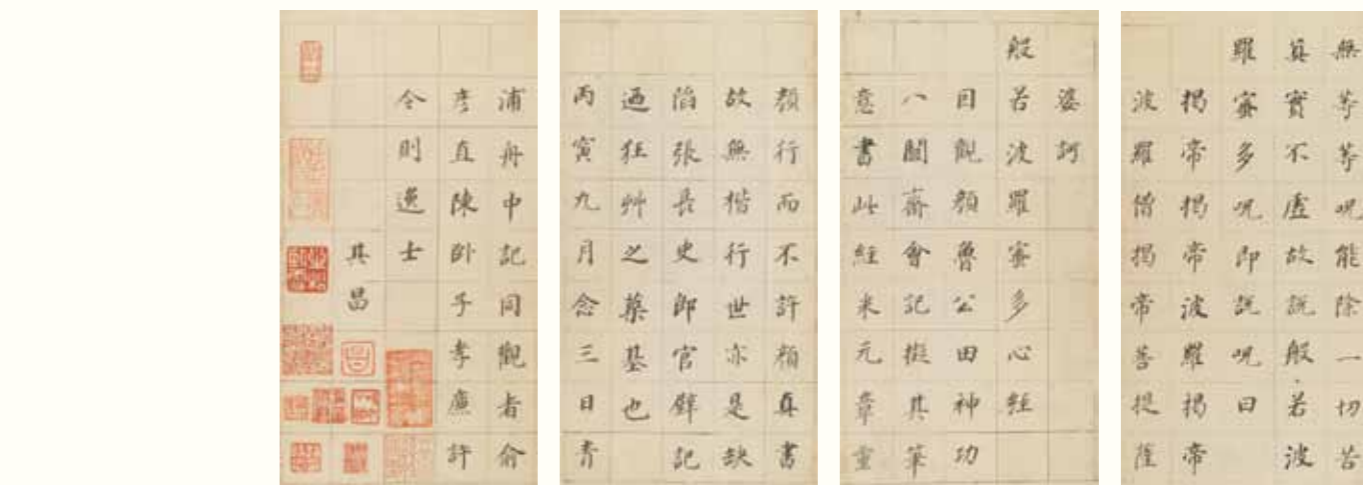 無等等呪能除一切苦
真實不虛故說般若波
羅蜜多呪即說呪曰
揭帝揭帝波羅揭帝
波羅僧揭帝菩提薩
婆訶
般若波羅蜜多心經
因觀顏魯公田神功
八關齋會記擬其筆
意書此經米元章重
顏行而不許顏真書
故無楷行世亦是缺
陷張長史郎官壁記
迺狂艸之築基也
丙寅九月念三日青
浦舟中記同觀者俞
彥直陳卧子孝廉許
令則逸士
其昌